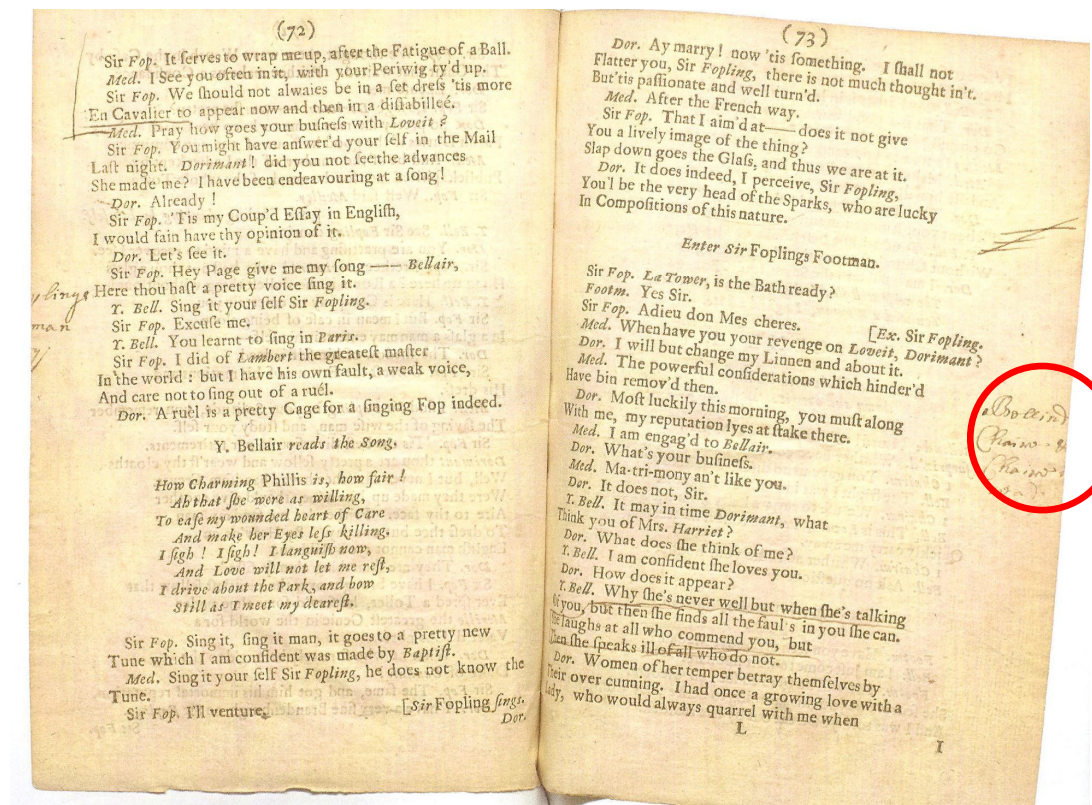 (72)
Sir Fop. It ſerves to wrap me up, after the Fatigue of a Ball.
Med. I See you often in it, with your Periwig ty'd up.
Sir Fop. We ſhould not alwaies be in a ſet dreſs 'tis more
En Cavalier to appear now and then in a diſſabilleé.
Med. Pray how goes your buſneſs with Loveit ?
Sir Fop. You might have anſwer'd your ſelf in the Mail
Laſt night. Dorimant ! did you not ſee the advances
She made me ? I have been endeavouring at a ſong !
Dor. Already !
Sir Fop. 'Tis my Coup'd Eſſay in Engliſh,
I would fain have thy opinion of it.
Dor. Let's ſee it.
Sir Fop. Hey Page give me my ſong —— Bellair,
Here thou haſt a pretty voice ſing it.
Y. Bell. Sing it your ſelf Sir Fopling.
Sir Fop. Excuſe me.
Y. Bell. You learnt to ſing in Paris.
Sir Fop. I did of Lambert the greateſt maſter
In the world : but I have his own fault, a weak voice,
And care not to ſing out of a ruél.
Dor. A ruèl is a pretty Cage for a ſinging Fop indeed.
Y. Bellair reads the Song.
How Charming Phillis is, how fair !
Ah that ſhe were as willing,
To eaſe my wounded heart of Care
And make her Eyes leſs killing.
I ſigh ! I ſigh! I languiſh now,
And Love will not let me reſt,
I drive about the Park, and bow
Still as I meet my deareſt.
Sir Fop. Sing it, ſing it man, it goes to a pretty new
Tune which I am confident was made by Baptiſt.
Med. Sing it your ſelf Sir Fopling, he does not know the
Tune.
Sir Fop. I'll venture. [Sir Fopling ſings.
Dor.
lings
man
(73)
Dor. Ay marry ! now 'tis ſomething. I ſhall not
Flatter you, Sir Fopling, there is not much thought in't.
But'tis paſſionate and well turn'd.
Med. After the French way.
Sir Fop. That I aim'd at—— does it not give
You a lively image of the thing ?
Slap down goes the Glaſs, and thus we are at it.
Dor. It does indeed, I perceive, Sir Fopling,
You'l be the very head of the Sparks, who are lucky
In Compoſitions of this nature.
Enter Sir Foplings Footman.
Sir Fop. La Tower, is the Bath ready ?
Footm. Yes Sir.
Sir Fop. Adieu don Mes cheres. [Ex. Sir Fopling.
Med. When have you your revenge on Loveit, Dorimant ?
Dor. I will but change my Linnen and about it.
Med. The powerful conſiderations which hinder'd
Have bin remov'd then.
Dor. Moſt luckily this morning, you muſt along
With me, my reputation lyes at ſtake there.
Med. I am engag'd to Bellair.
Dor. What's your buſineſs.
Med. Ma-tri-mony an't like you.
Dor. It does not, Sir.
Y. Bell. It may in time Dorimant, what
Think you of Mrs. Harriet ?
Dor. What does ſhe think of me ?
Y. Bell. I am confident ſhe loves you.
Dor. How does it appear ?
Y. Bell. Why ſhe's never well but when ſhe's talking
Of you, but then ſhe finds all the faul's in you ſhe can.
She laughs at all who commend you, but
Then ſhe ſpeaks ill of all who do not.
Dor. Women of her temper betray themſelves by
Their over cunning. I had once a growing love with a
Lady, who would always quarrel with me when
L
I